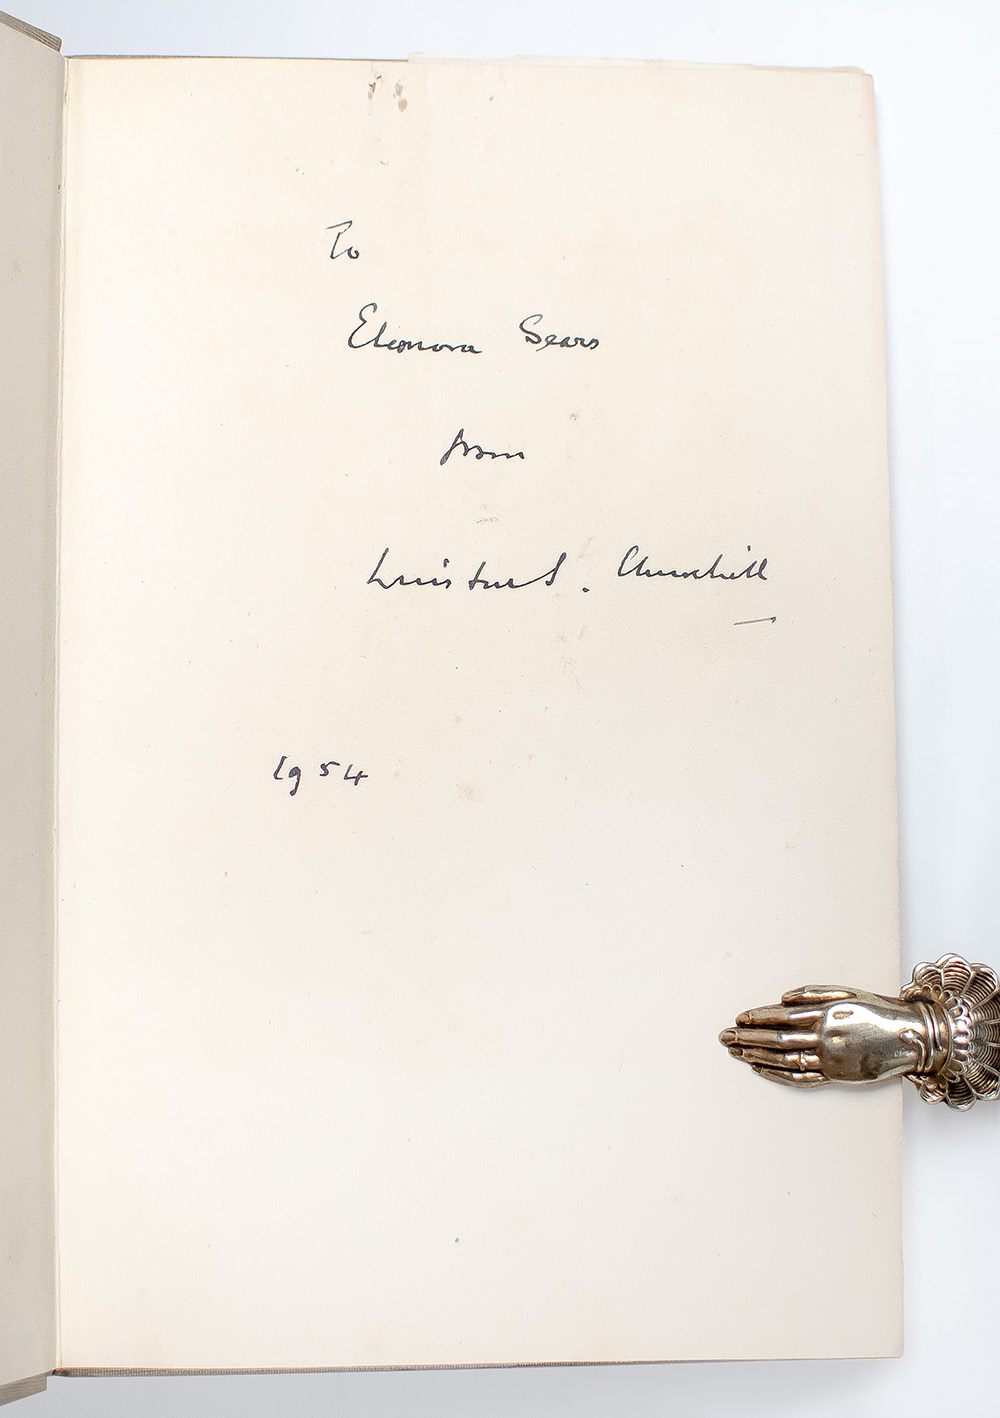 To
Eleonora Sears
from
Winston S. Churchill
1954